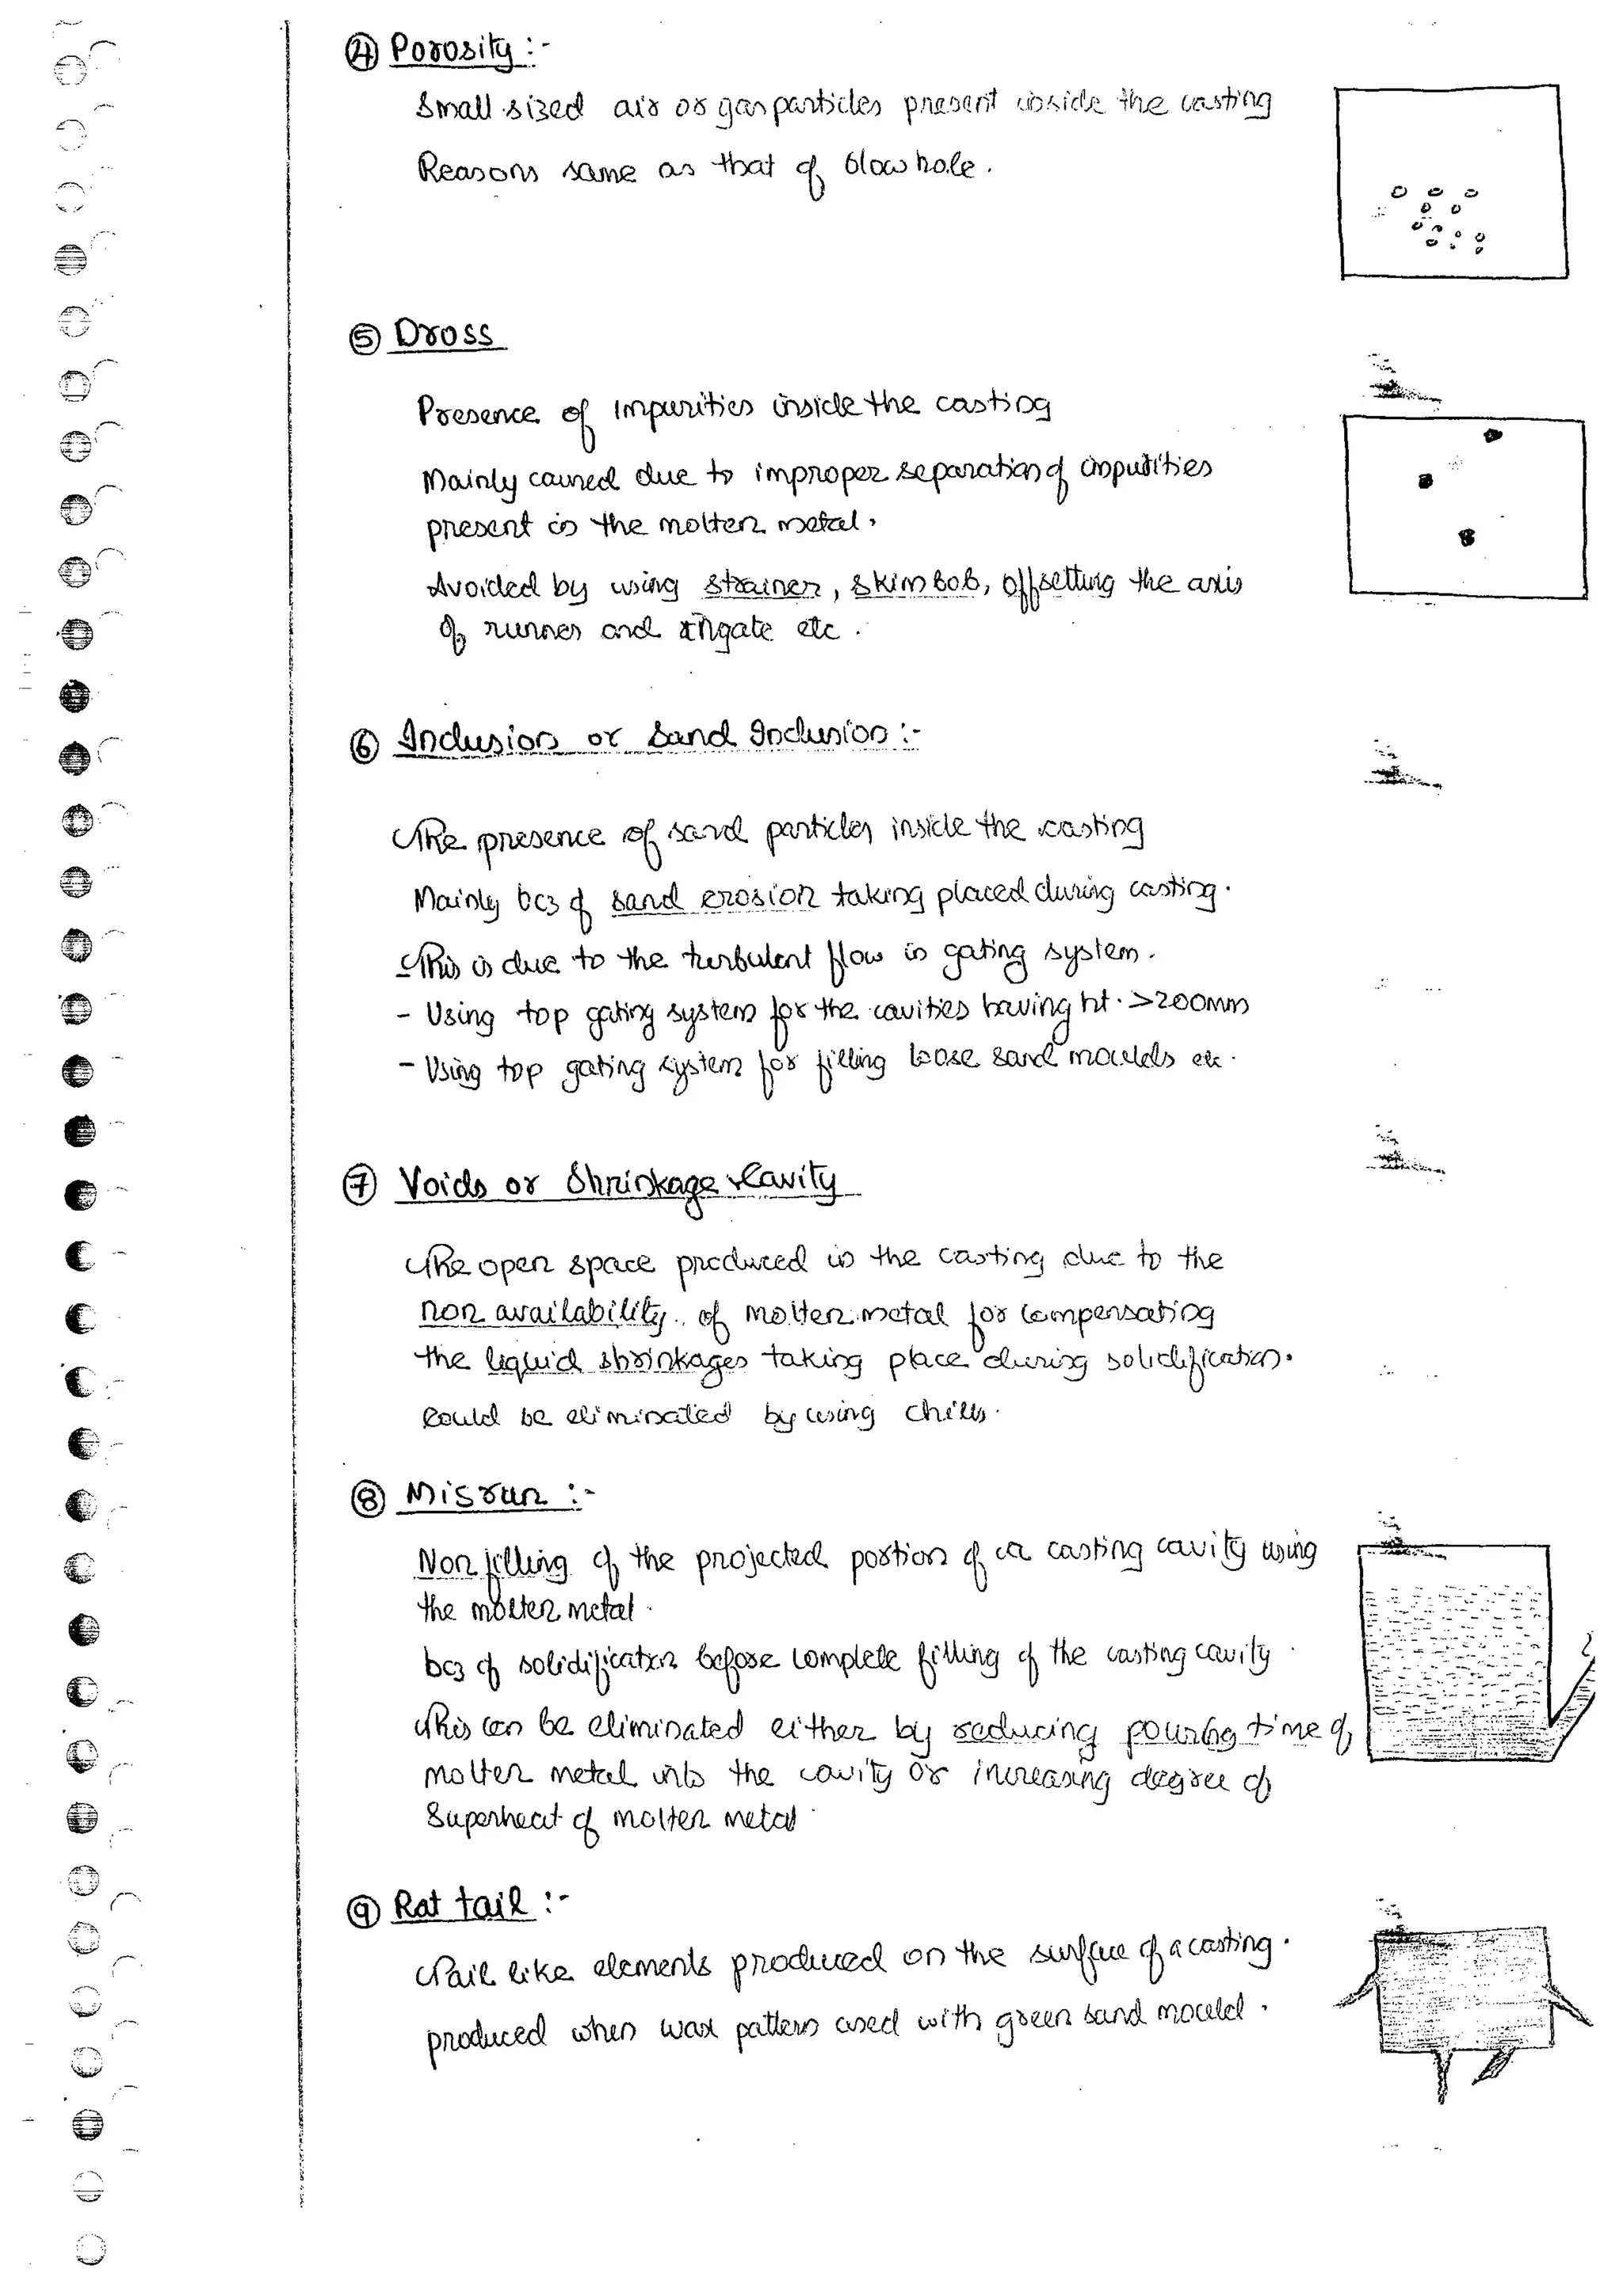 ④ Porosity :-
Small sized air or gas particles present inside the casting
Reasons same as that of blow hole.
⑤ Dross
Presence of impurities inside the casting
Mainly caused due to improper separation of impurities
present in the molten metal.
Avoided by using strainer, skim bob, offsetting the axis
of runner and ingate etc.
⑥ Inclusion or Sand Inclusion :-
The presence of sand particles inside the casting
Mainly bcz of sand erosion taking placed during casting.
This is due to the turbulent flow in gating system.
- Using top gating system for the cavities having ht. >200mm
- Using top gating system for filling loose sand moulds etc.
⑦ Voids or Shrinkage Cavity
The open space produced in the casting due to the
non availability of molten metal for compensating
the liquid shrinkages taking place during solidification.
Could be eliminated by using chills.
⑧ Misrun :-
Non filling of the projected portion of a casting cavity using
the molten metal.
bcz of solidification before complete filling of the casting cavity
This can be eliminated either by reducing pouring time of
molten metal into the cavity or increasing degree of
Superheat of molten metal.
⑨ Rat tail :-
Tail like elements produced on the surface of a casting.
produced when wax pattern used with green sand mould.